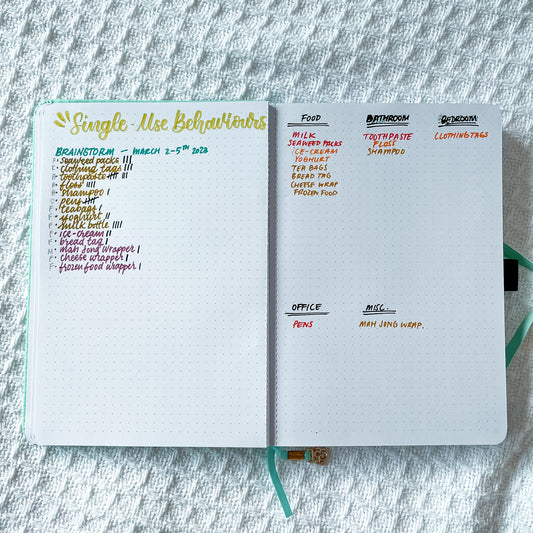 Single-Use Behaviours
BRAINSTORM - MARCH 2-5TH 2023
F • seaweed packs III
B • clothing tags III
B • toothpaste IIII II
B • floss IIII
B • shampoo I
O • pens IIII
F • teabags I
F • yoghurt II
F • milk bottle IIII
F • ice-cream II
F • bread tag I
M • mah jong wrapper I
F • cheese wrapper I
F • frozen food wrapper I
FOOD
MILK
SEAWEED PACKS
ICE-CREAM
YOGHURT
TEA BAGS
BREAD TAG
CHEESE WRAP
FROZEN FOOD
BATHROOM
TOOTHPASTE
FLOSS
SHAMPOO
BEDROOM
CLOTHING TAGS
OFFICE
PENS
MISC.
MAH JONG WRAP.